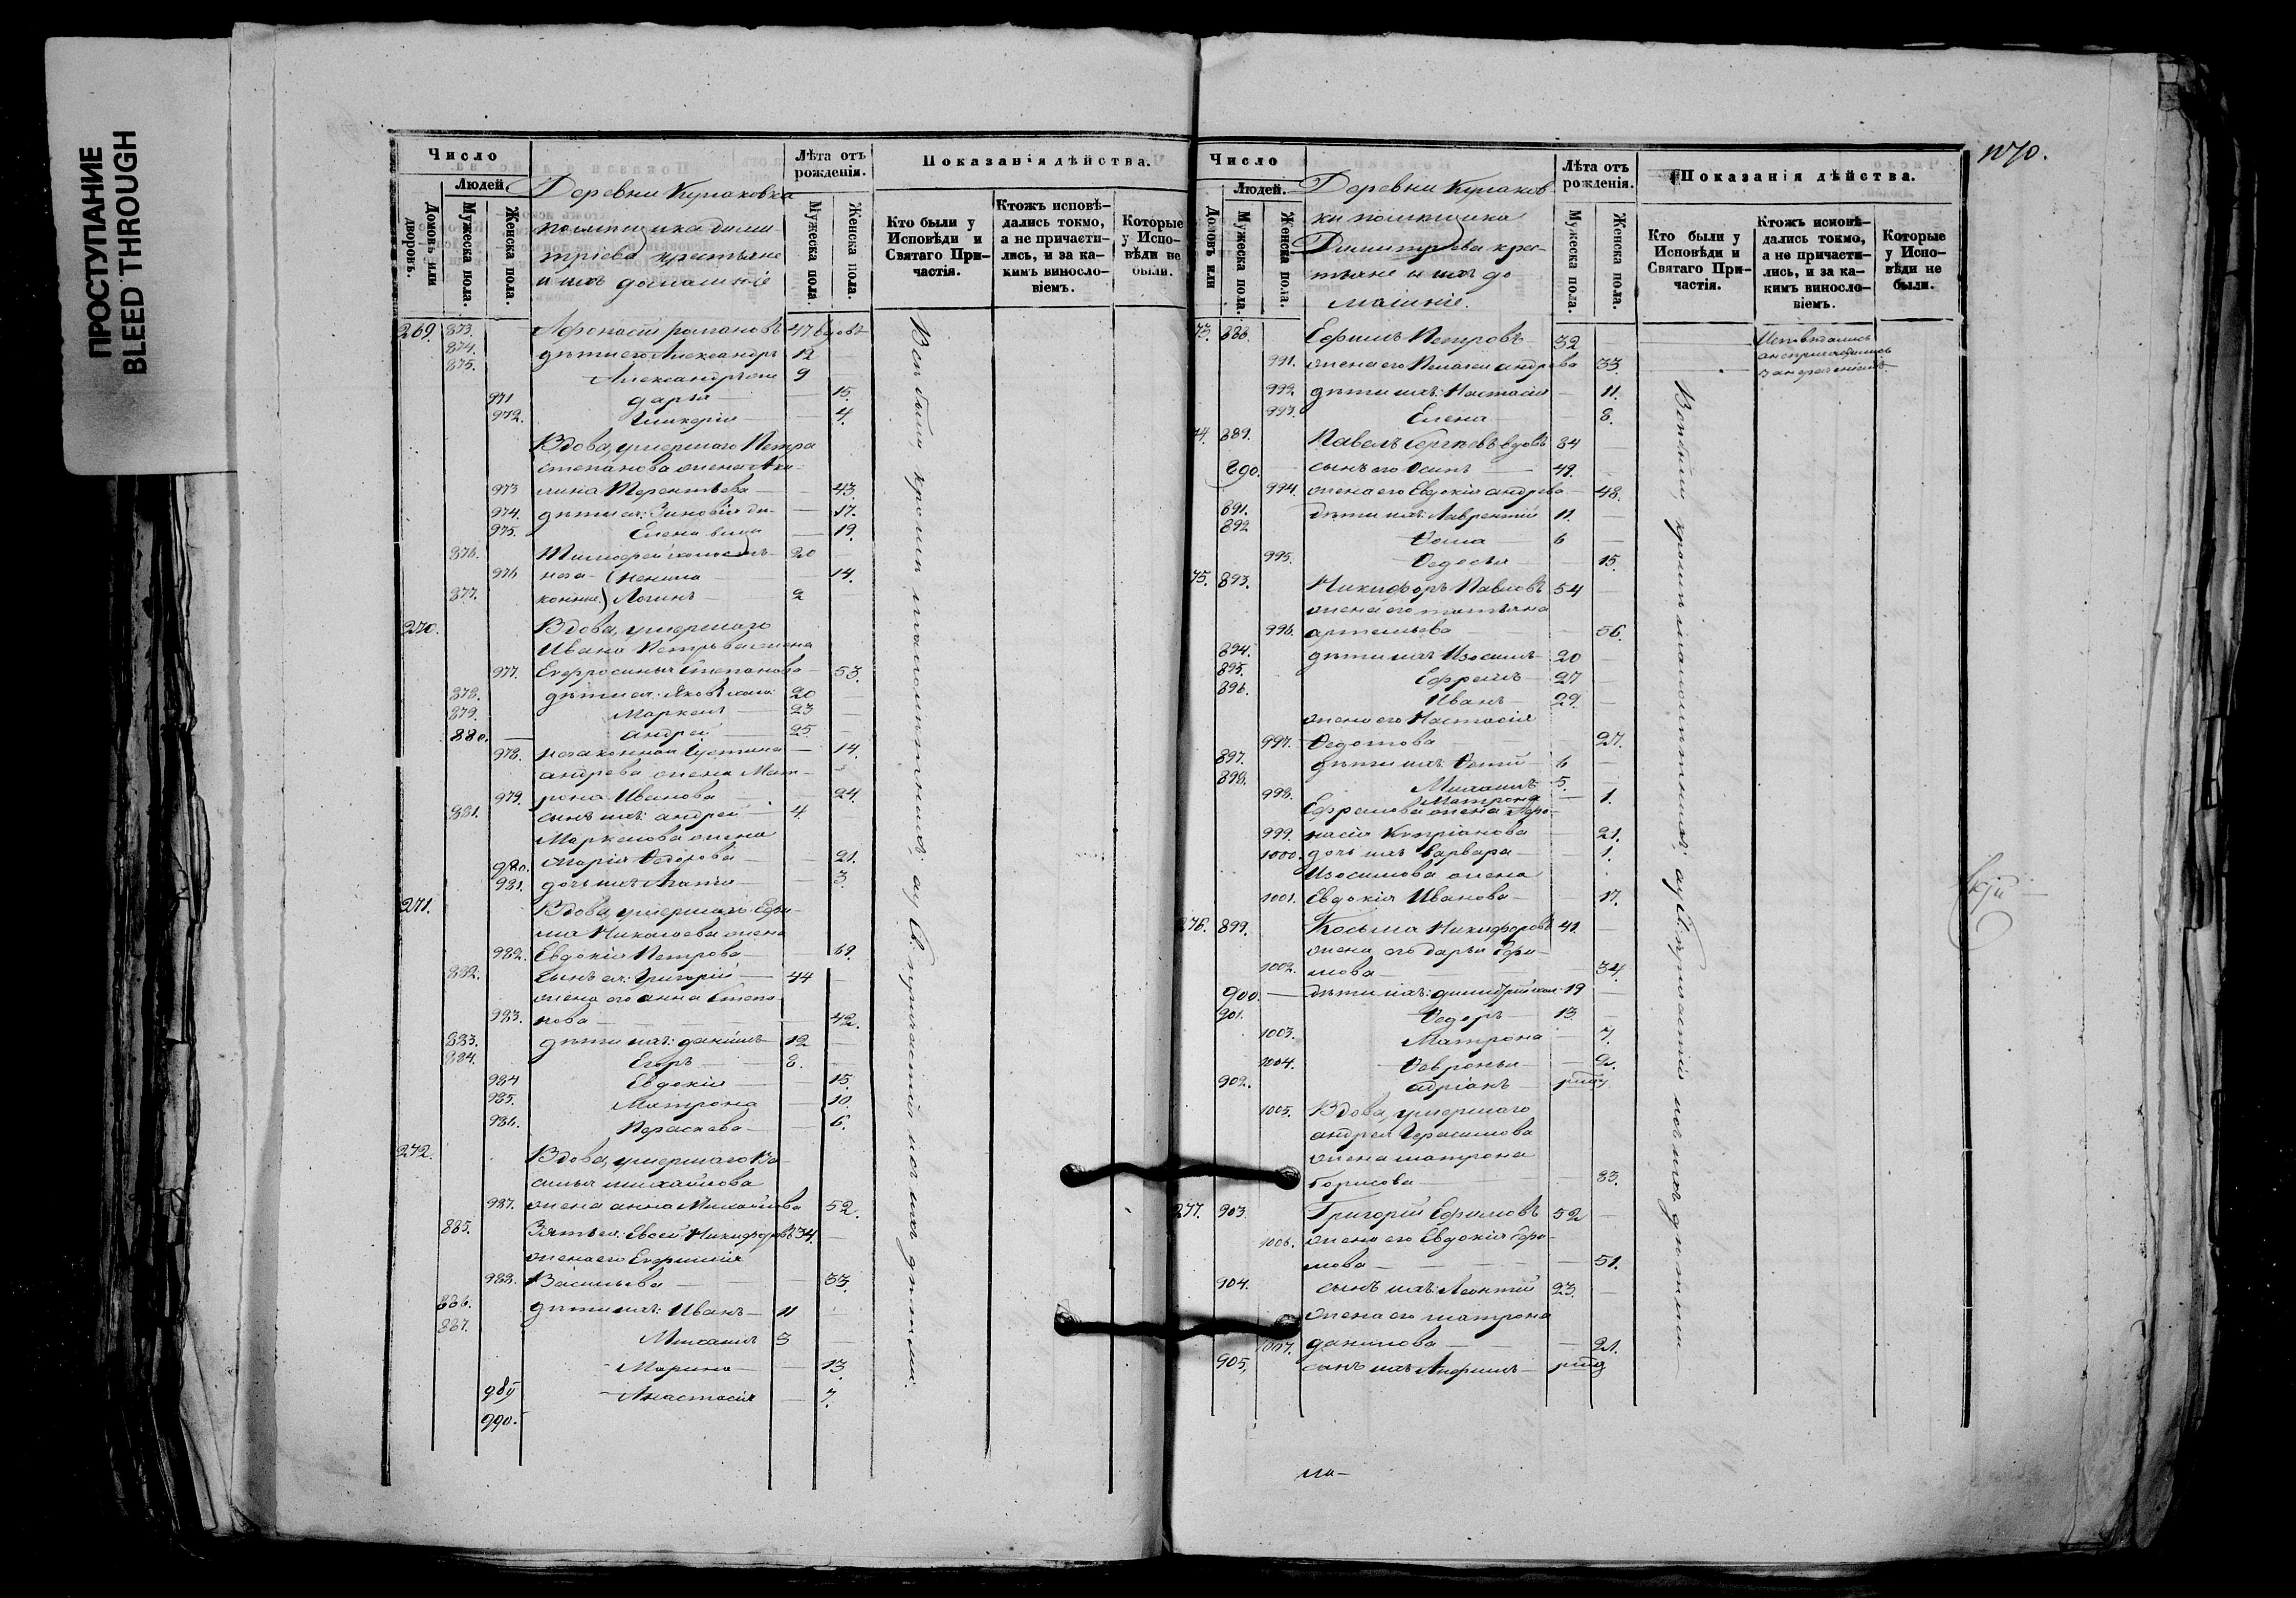 ПРОСТУПАНИЕ
BLEED THROUGH
Число
Людей
Домовъ или дворовъ.
Мужеска пола.
Женска пола.
Деревни
помещика Дими-
тріева крестьяне
и ихъ домашніе
Лѣта отъ рожденія.
Мужеска пола.
Женска пола.
Показанія дѣйства.
Кто были у Исповѣди и Святаго Причастія.
Ктожъ исповѣдались токмо, а не причастились, и за какимъ винословіемъ.
Которые у Исповѣди не были.
269. 873. Афонасій романовъ 47 вдовъ
874. дѣти его Александръ 12
875. Александръ 9
971 дарья 15.
972. Гликерія 4.
Вдова, умершаго Петра
степанова жена Аку-
973 лина Терентьева 43.
974. дѣти ея: Зиновія 17.
975. Елена 19.
876. Тимофей 20
976 14.
877. Логинъ 2
270. Вдова, умершаго
Ивана Петрова жена
977. Евфросинья Степанова 53.
878. дѣти ея: Яковъ 20
879. Маркелъ 23
880. андрей 25
978. незаконная Іустина 14.
андрева жена Мат-
979. рона Иванова 24.
881. сынъ ихъ: андрей 4.
Маркелова жена
980. Марія Федорова 21.
981. дочь ихъ Агапія 3.
271. Вдова, умершаго Ефи-
ма Николаева жена
982. Евдокія Петрова 69.
882. сынъ ея: Григорій 44
жена его анна Степа-
983. нова 42.
883. дѣти ихъ: даніилъ 12
884. Егоръ 8.
984 Евдокія 15.
985. Матрона 10.
986. Параскева 6.
272. Вдова, умершаго Ва-
силья михайлова
987. жена анна Михайлова 52.
885. Зять ея: Евсей Никифоровъ 34.
жена его Евфимія
988. Васильева 33.
886. дѣти ихъ: Иванъ 11
887. Михаилъ 3
Марина 13.
989 Анастасія 7.
990.
Вси были, кромѣ малолѣтнихъ; а у Св. причастія и съ ихъ дѣтьми.
1070.
Число
Людей.
Домовъ или
Мужеска пола.
Женска пола.
Деревни
ки помещика
Димитріева крес-
тьяне и ихъ до
машніе.
Лѣта отъ рожденія.
Мужеска пола.
Женска пола.
Показанія дѣйства.
Кто были у Исповѣди и Святаго Причастія.
Ктожъ исповѣдались токмо, а не причастились, и за какимъ винословіемъ.
Которые у Исповѣди не были.
73. 888. Ефимъ Петровъ 32
Исповѣдались
а не причастились
991. жена его Пелагея андрева 33.
992 дѣти ихъ: Настасія 11.
993. Елена 8.
74. 889. Павелъ Сергѣевъ вдовъ 84
890. сынъ его Осипъ 49.
994. жена его Евдокія андрева 48.
891. дѣти ихъ: Лаврентій 11.
892 Ѳома 6
995. Ѳедосья 15.
75. 893. Никифоръ Павловъ 54
жена его татьяна
996. артемьева 56.
894. дѣти ихъ: Изосимъ 20
895. Ефремъ 27
896. Иванъ 29.
жена его Настасія
997. Ѳедотова 27.
897. дѣти ихъ: 6
898. Михаилъ 5.
998. Матрона 1.
Ефремова жена Афо-
999. насія Купріанова 21.
1000. дочь ихъ Варвара 1.
Изосимова жена
1001. Евдокія Иванова 17.
276. 899. Косьма Никифоровъ 41.
жена его дарья Ефи-
1002. мова 34.
900. дѣти ихъ: димитрій 19
901. Ѳедоръ 13
1003. Матрона 7.
1004. Ѳевронья 2.
902. адріанъ
1005. Вдова, умершаго
андрея Герасимова
жена матрона
борисова 83.
277. 903. Григорій Ефимовъ 52
1006. жена его Евдокія Ефи-
мова 51.
904. сынъ ихъ: Леонтій 23.
жена его матрона
1007. данилова 21.
905. сынъ ихъ
Вси были, кромѣ малолѣтнихъ; а у Св. причастія и съ ихъ дѣтьми